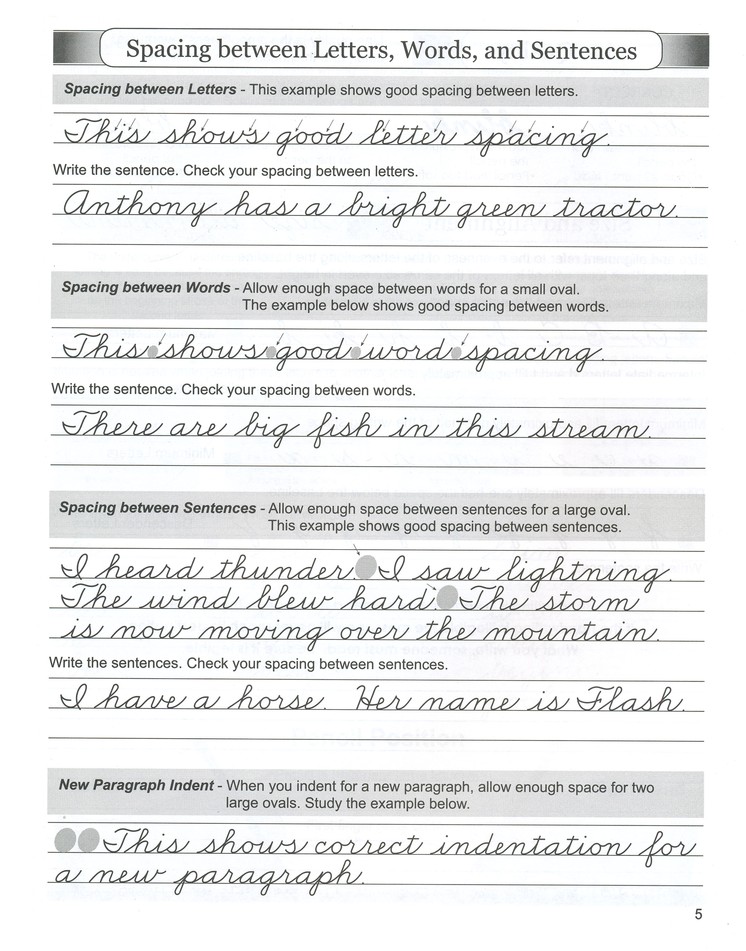 Spacing between Letters, Words, and Sentences
Spacing between Letters - This example shows good spacing between letters.
This shows good letter spacing.
Write the sentence. Check your spacing between letters.
Anthony has a bright green tractor.
Spacing between Words - Allow enough space between words for a small oval.
The example below shows good spacing between words.
This shows good word spacing.
Write the sentence. Check your spacing between words.
There are big fish in this stream.
Spacing between Sentences - Allow enough space between sentences for a large oval.
This example shows good spacing between sentences.
I heard thunder. I saw lightning.
The wind blew hard. The storm
is now moving over the mountain.
Write the sentences. Check your spacing between sentences.
I have a horse. Her name is Flash.
New Paragraph Indent - When you indent for a new paragraph, allow enough space for two
large ovals. Study the example below.
This shows correct indentation for
a new paragraph.
5